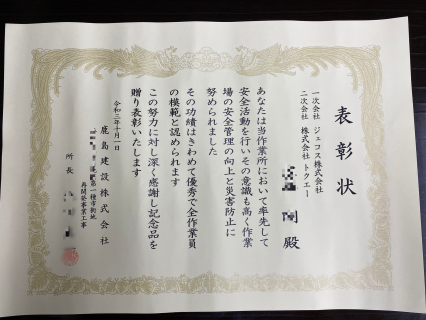 表彰状
一次会社 ジェコス株式会社
二次会社 株式会社トクエー
殿
あなたは当作業所において率先して
安全活動を行いその意識も高く作業
場の安全管理の向上と災害防止に
努められました
その功績はきわめて優秀で全作業員
の模範と認められます
この努力に対し深く感謝し記念品を
贈り表彰いたします
令和三年十月一日
鹿島建設株式会社
第一種市街地
再開発事業工事
所長